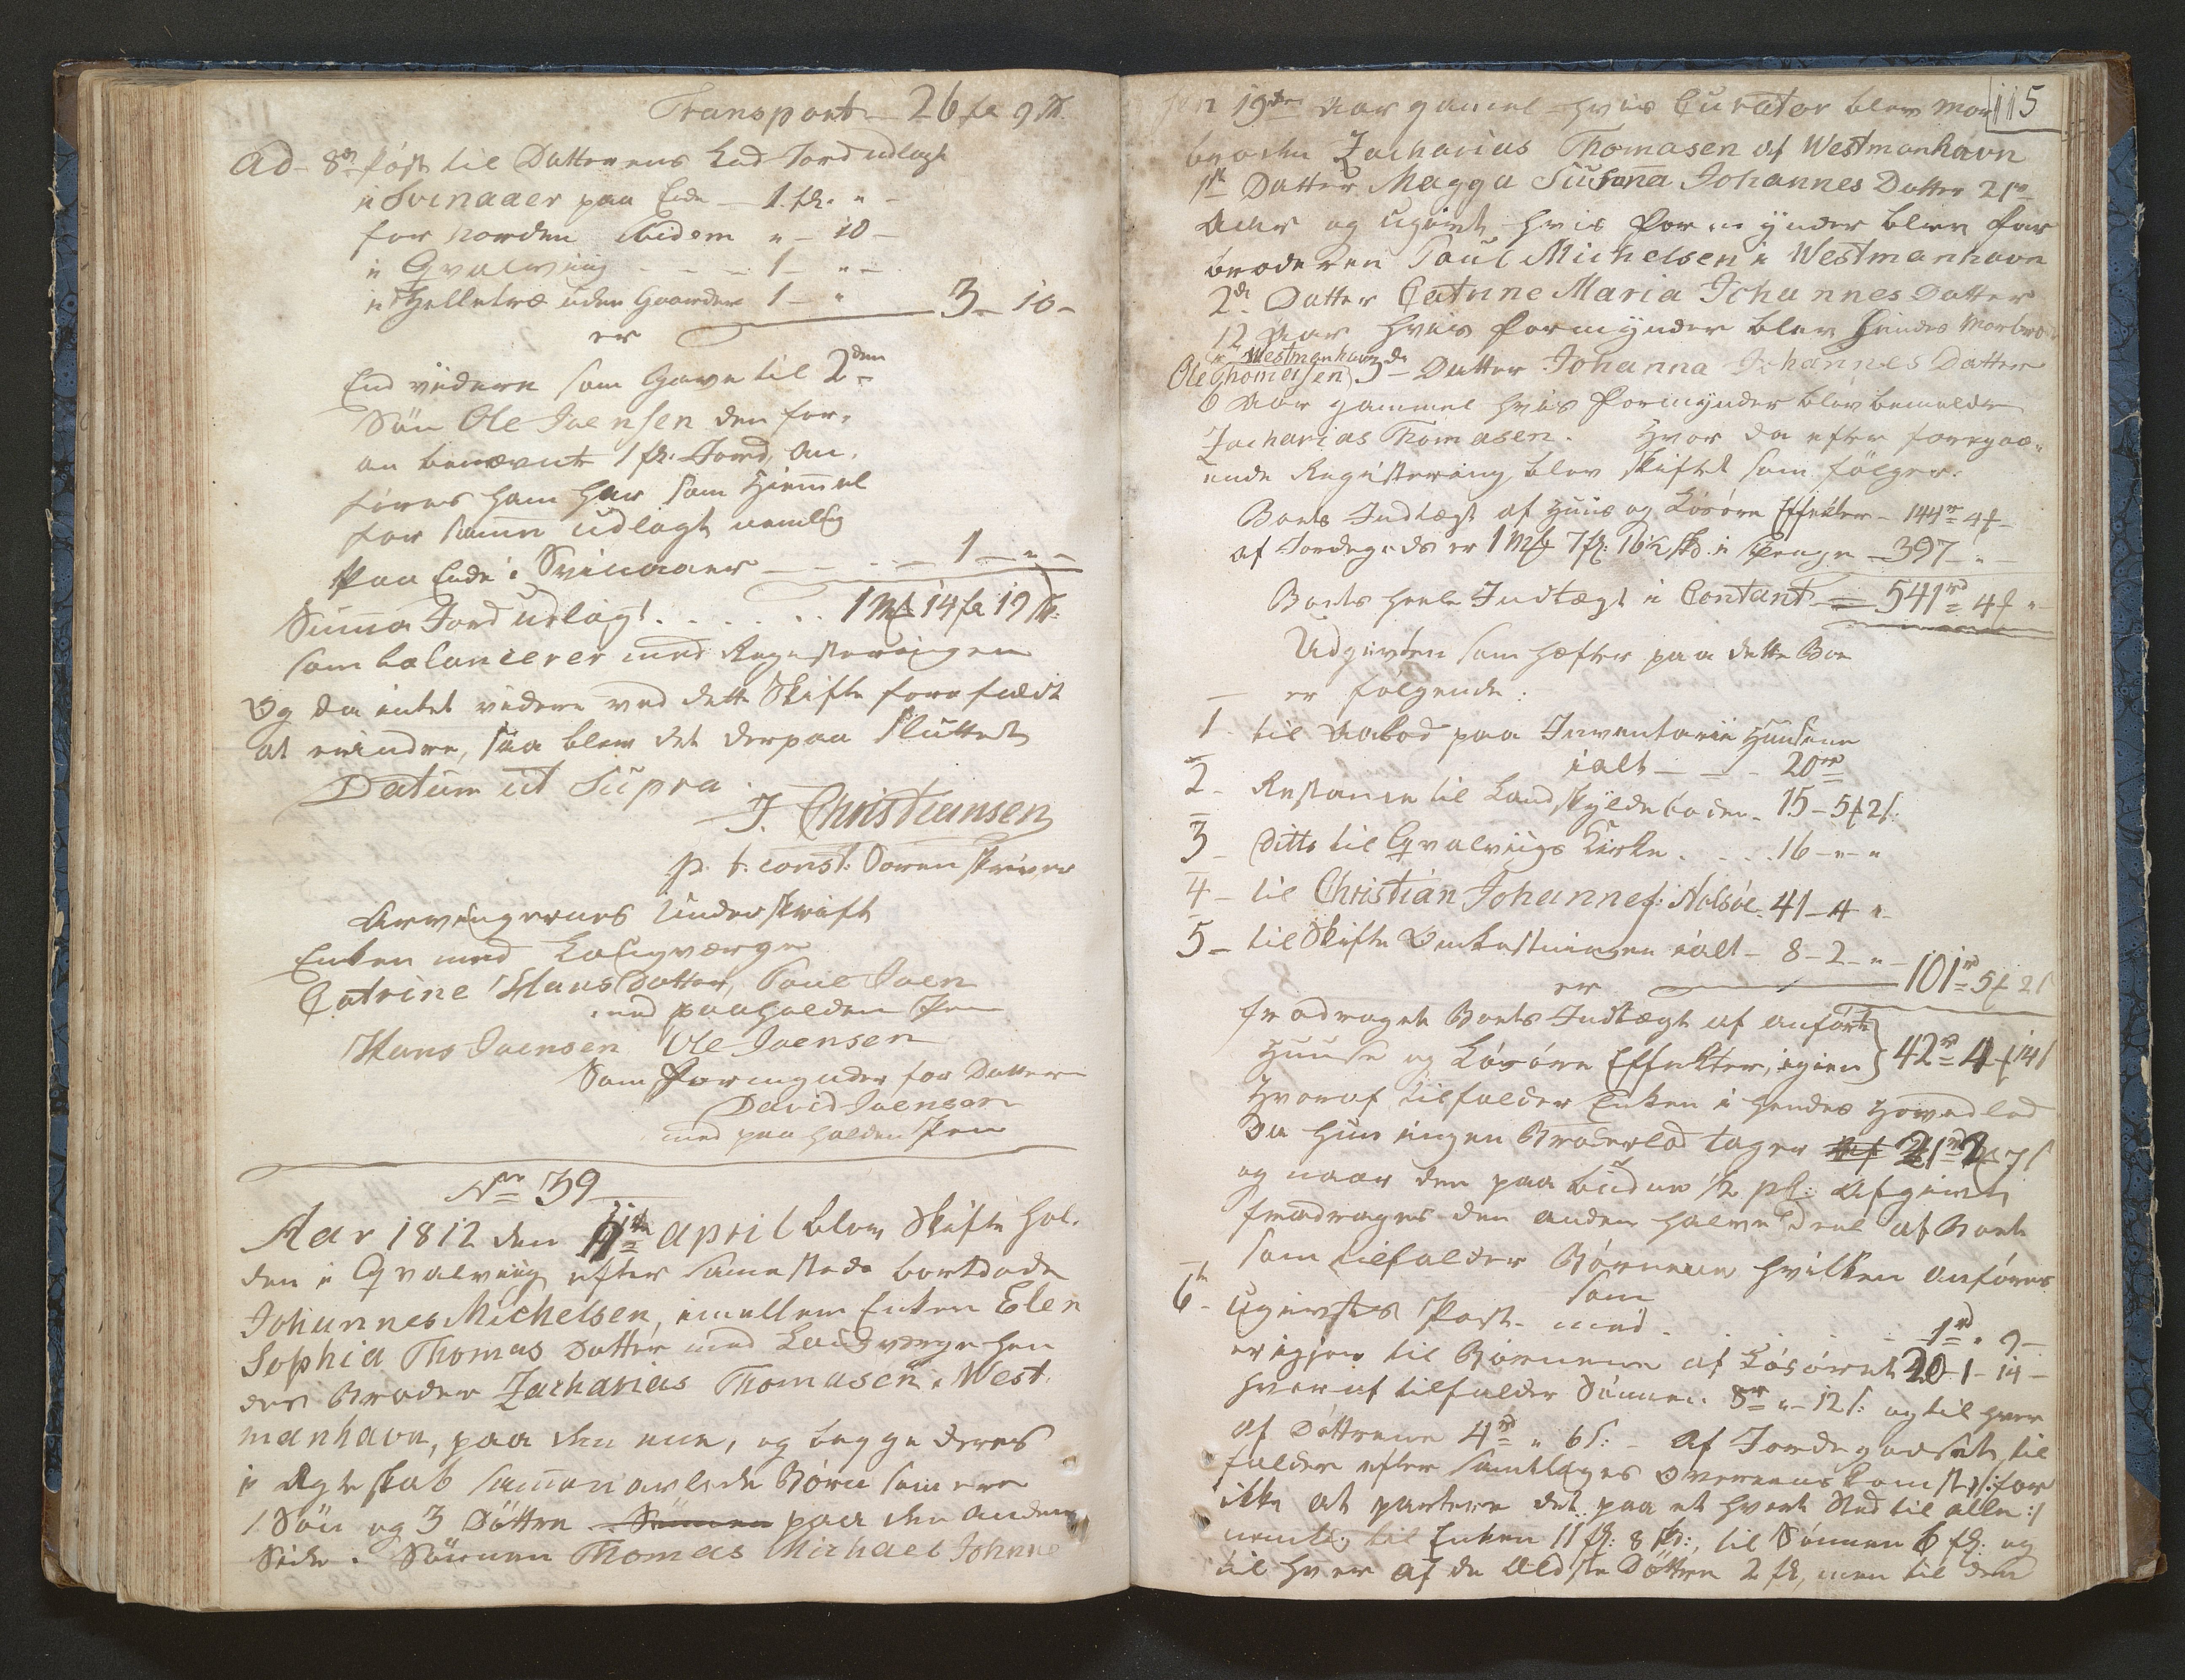 Transport 26 fr 9 sk.
Ad 8de Post til Datterens Lod Jord udlagt
i Svinaaer paa Eide — 1 fr. " —
for norden ibidem " — 10 —
i Qvalviig — — — 1 — " —
i Helletræ uden Gaarden 1 — " 3 — 10 —
er
End videre som Gave til 2den
Søn Ole Joensen den for,
an benævnte 1 fr. Jord, an,
føres ham her som Hiemmel
for samme udlagt nemlig
Paa Eide i Svinaaer — — — 1 — " —
Summa Jord udlagt . . . . . . 1 Mk 14 fr 19 sk.
som balancerer med Registeringen
Og da intet videre ved dette Skifte forefaldt
at erindre, saa blev det derpaa sluttet
Datum ut Supra.
J. Christiansen
p. t. const. Sorenskriver
Arvingernes Underskrift
Enken med Laugværge
Catrine Hans Datter, Poul Joen
med paaholden Pen
Hans Joensen Ole Joensen
Som Formynder for Datteren
David Joensen
med paaholden Pen
No 39
Aar 1812 den 11te April blev Skifte hol,
den i Qvalviig efter sammesteds bortdøde
Johannes Michelsen, imellem Enken Elen
Sophia Thomas Datter med Laugværge hen
des Broder Zacharias Thomasen i West,
manhavn, paa den ene, og begge deres
i Ægteskab sammenavlede Børn som ere
1 Søn og 3 Døttre Sønnen paa den anden
Side. Sønnen Thomas Michael Johanne
sen 19ten Aar gamel hvis Curator blev Mor 115
broder Zacharias Thomasen af Westmanhavn
1ste Datter Magga Susanna Johannes Datter 21de
Aar og ugivt hvis Formynder blev Far
broderen Poul Michelsen i Westmanhavn
2den Datter Catrine Maria Johannes Datter
12 Aar hvis Formynder blev hendes Morbro
i Westmanhavn
Ole Thomasen 3die Datter Johanna Johannes Datter
6 Aar gammel hvis Formynder blev bemeldte
Zacharias Thomasen. Hvor da efter foregaa,
ende Registering blev skiftet som følger.
Boets Indtægt af Huus og Løsøre Effekter — 144 rd 4 f —
af Jordegods er 1 Mk 7 fr: 16½ sk: i Penge — 397 — " —
Boets heele Indtægt i Contant — 541 rd 4 f " —
Udgivten som hefter paa dette Boe
er følgende:
1 til Aabod paa Inventarii Huusene
ialt — — — 20 rd
2 — Restance til Landskyldeboden — 15 — 5 f 2 s.
3 — Ditto til Qvalviigs Kirke . . . . 16 — " — "
4 — til Christian Johannes: Holsøe 41 — 4 — " —
5 — til Skifte Omkostningen ialt — 8 — 2 — " —
er 101 rd 5 f 2 s
fradraget Boets Indtægt af anførte
Huuse og Løsøre Effekter, igien } 42 rd 4 f 14 s
Hvoraf tilfalder Enken i hendes Hovedlod
Da hun ingen Broderlod tager 21 rd 2 f 7 s
og naar den paabudne ½ pC: Afgivt
fradrages den anden halve Deel af Boet
som tilfalder Børnene hvilken anføres
som
6te Ugivts Post med — — — 1 rd " 9 —
er igjen til Børnene af Løsøret 20 — 1 — 14 —
hvoraf tilfalder Sønnen 8 rd " — 12 s: og til hver
af Døttrene 4 rd " 6 s: — Af Jordegodset til
falder efter samtliges Overeenskomst /: for
ikke at partere det paa et hvert Sted til alle :/
nemlig til Enken 11 fr: 8 sk:, til Sønnen 6 fr: og
til hver af de Ældste Døttre 2 fr, men til den